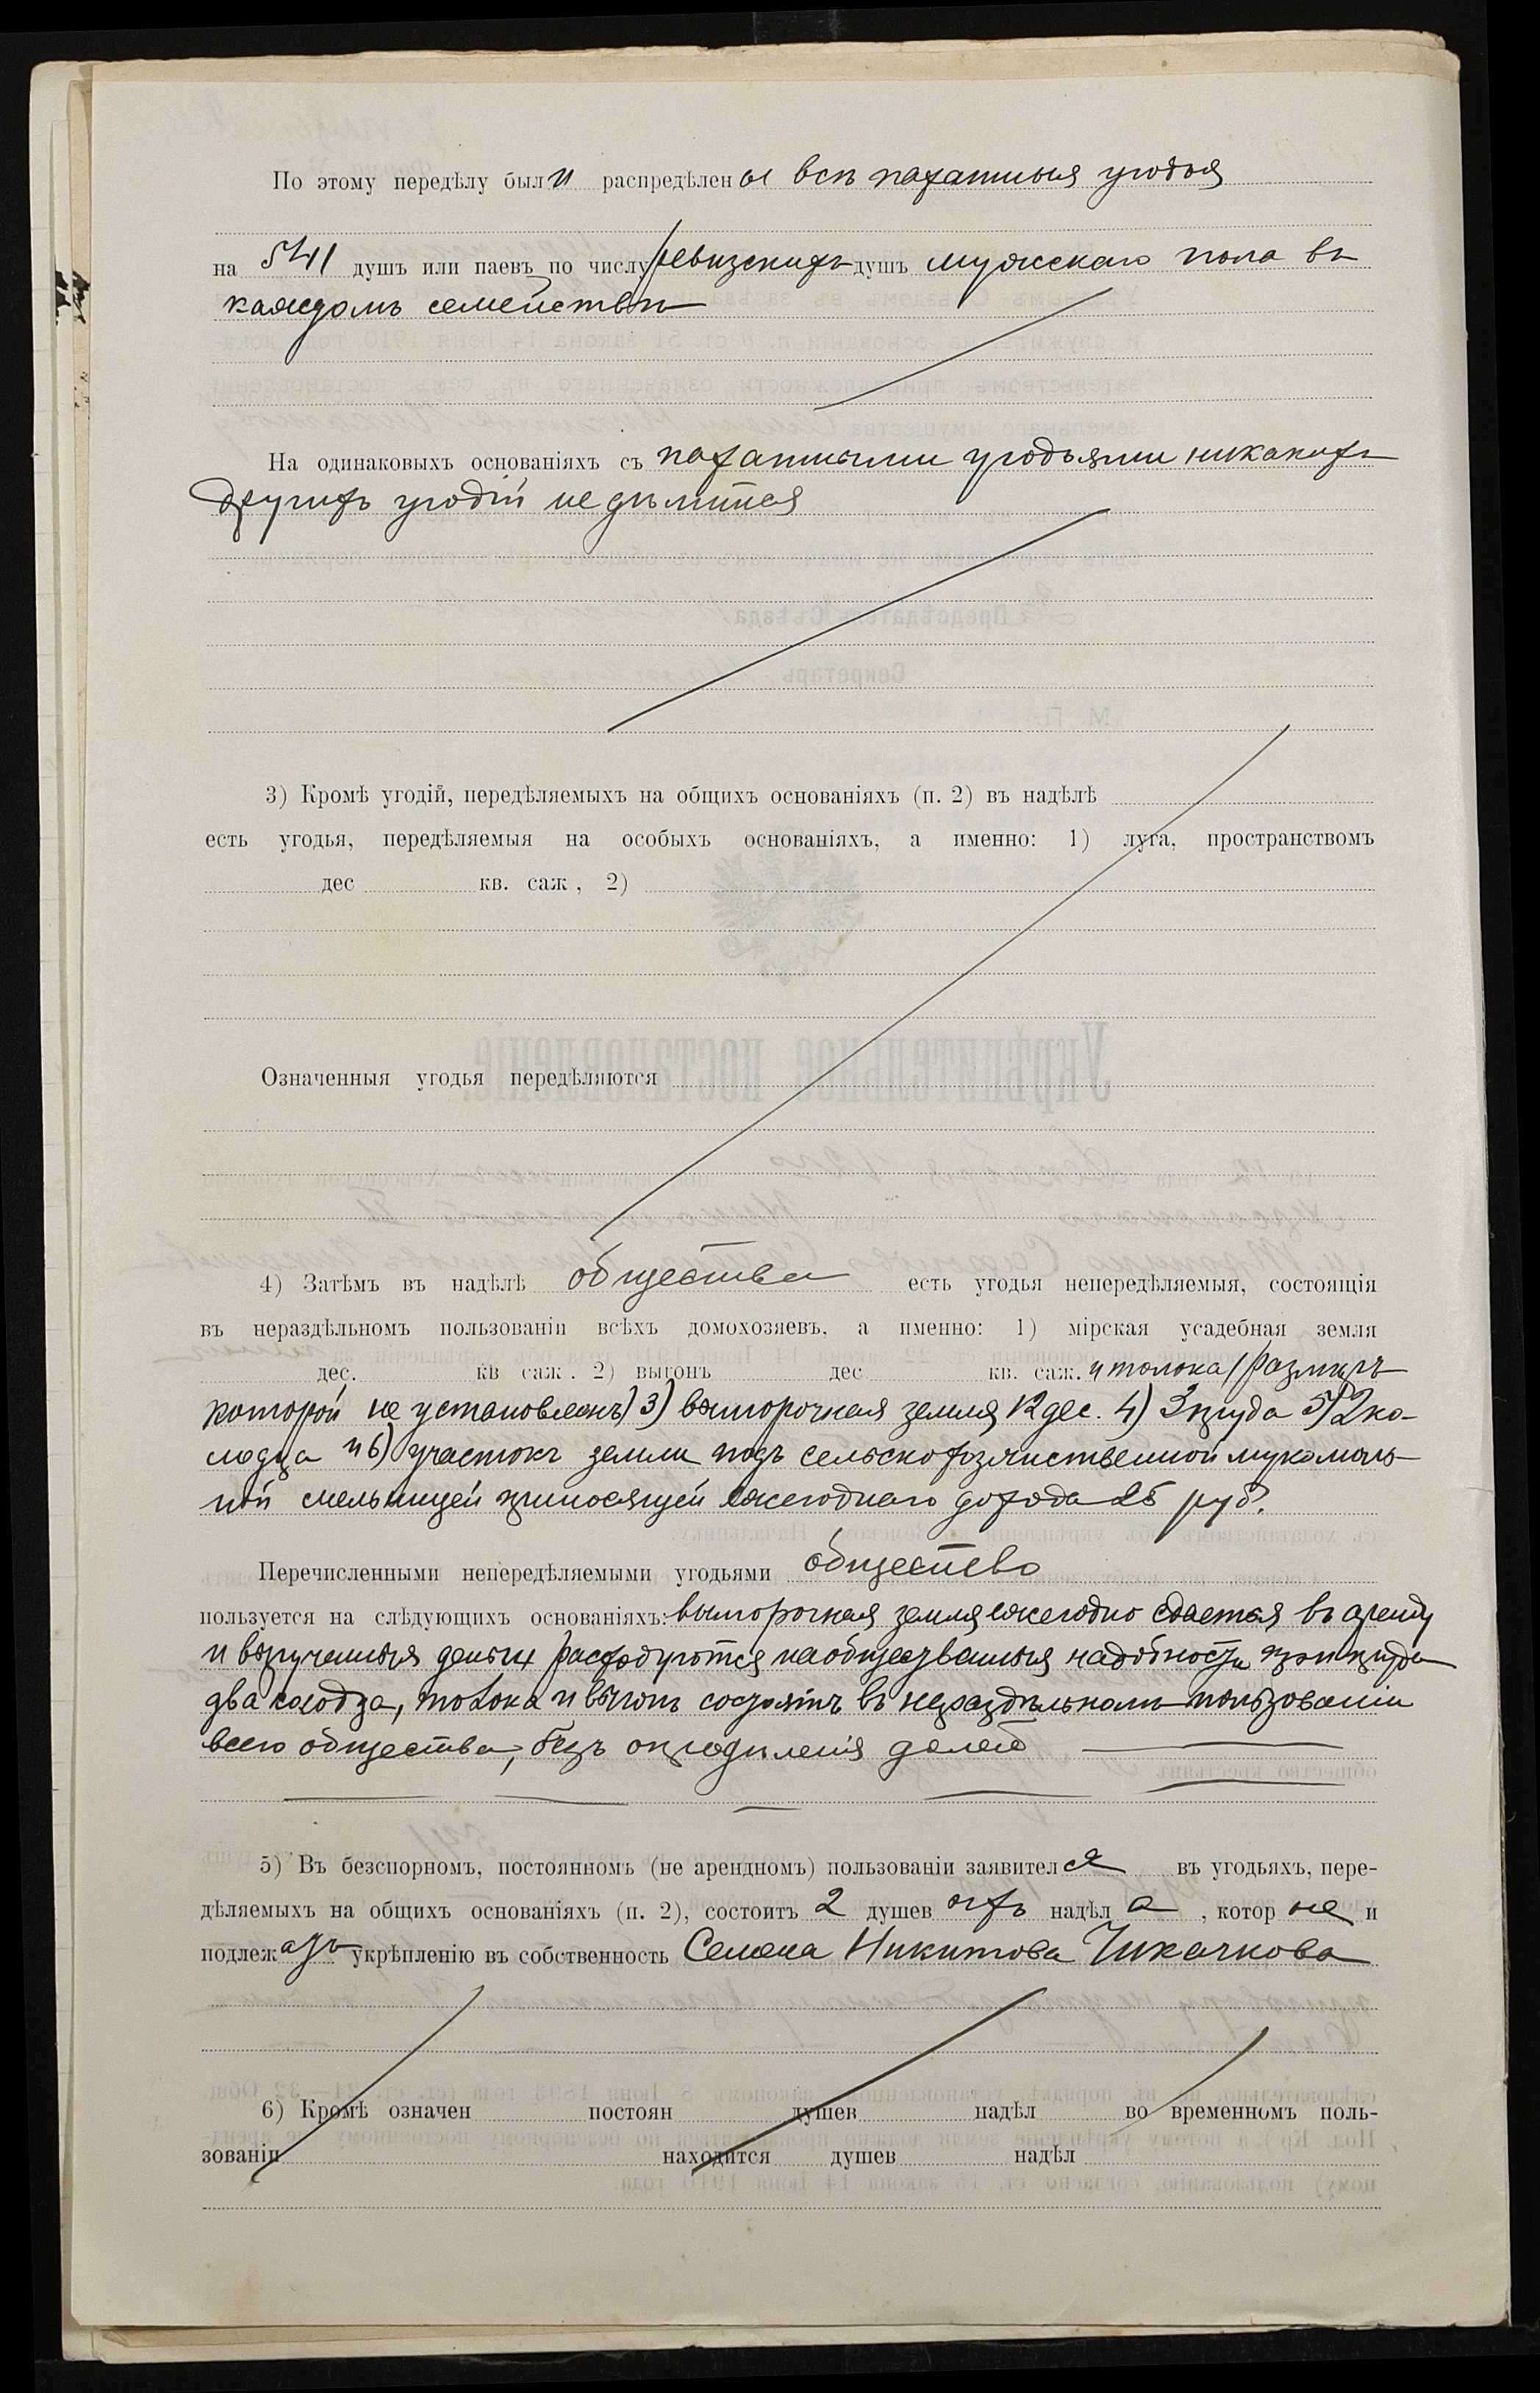 По этому передѣлу были распредѣлены всѣ пахатныя угодья
на 541 душъ или паевъ по числу ревизскихъ душъ мужскаго пола въ
каждомъ семействѣ
На одинаковыхъ основаніяхъ съ пахатными угодьями никакихъ
другихъ угодій не дѣлится
3) Кромѣ угодій, передѣляемыхъ на общихъ основаніяхъ (п. 2) въ надѣлѣ
есть угодья, передѣляемыя на особыхъ основаніяхъ, а именно: 1) луга, пространствомъ
дес кв. саж, 2)
Означенныя угодья передѣляются
4) Затѣмъ въ надѣлѣ общества есть угодья непередѣляемыя, состоящія
въ нераздѣльномъ пользованіи всѣхъ домохозяевъ, а именно: 1) мірская усадебная земля
дес. кв саж. 2) выгонъ дес кв. саж. и толока (размѣръ
которой не установленъ) 3) выморочная земля 12 дес. 4) 3 пруда 5) 2 ко-
лодца и 6) участокъ земли подъ сельскохозяиственной мукомоль-
ной мельницей приносящей ежегоднаго дохода 25 руб.
Перечисленными непередѣляемыми угодьями общество
пользуется на слѣдующихъ основаніяхъ: выморочная земля ежегодно сдается въ аренду
и вырученныя деньги расходуются на общественныя надобности три пруда
два колодца, толока и выгонъ состоятъ въ нераздѣльномъ пользованіи
всего общества, безъ опредѣленія долей
5) Въ безспорномъ, постоянномъ (не арендномъ) пользованіи заявителя въ угодьяхъ, пере-
дѣляемыхъ на общихъ основаніяхъ (п. 2), состоитъ 2 душевныхъ надѣла, которые и
подлежатъ укрѣпленію въ собственность Семена Никитова Чикачкова
6) Кромѣ означен постоян душев надѣл во временномъ поль-
зованіи находится душев надѣл